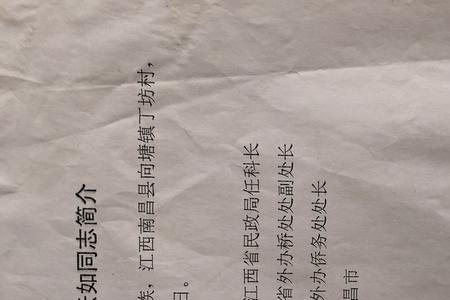 如同志简介
族，江西南昌县向塘镇丁坊村，
日。
江西省民政局任科长
省外办桥处处副处长
外办侨务处处长
昌市